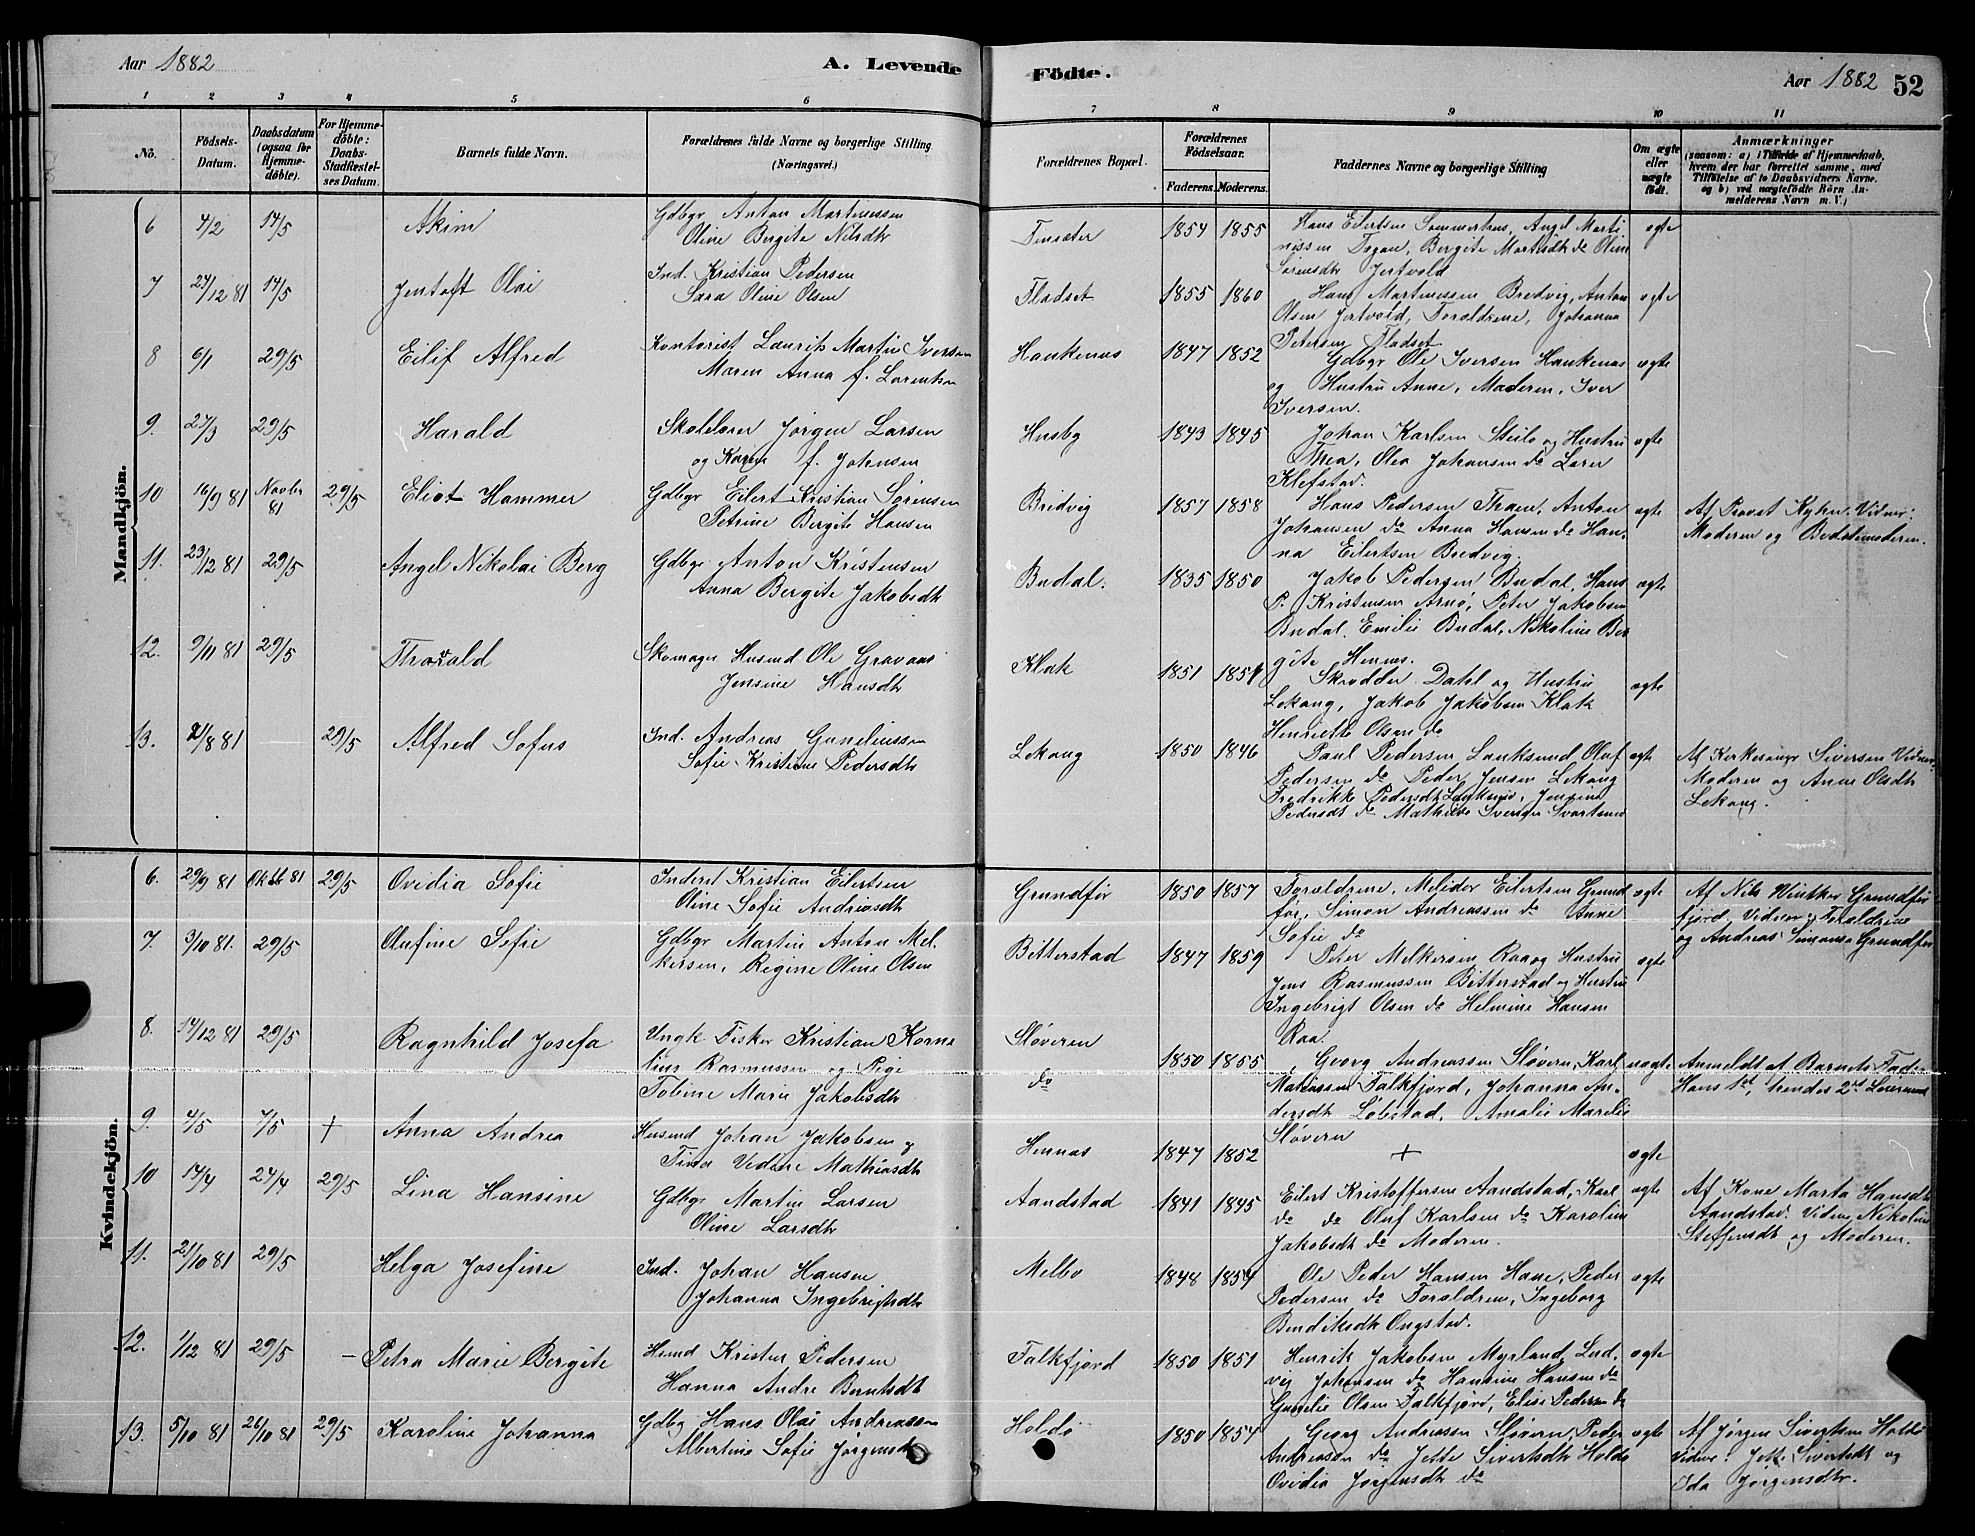 Aar 1882
A. Levende
Födte.
Aar 1882 52
1 2 3 4 5 6 7 8 9 10 11
No.
Födsels-
Datum.
Daabsdatum
(ogsaa for
Hjemme-
döbte).
For Hjemme-
döbte:
Daabs-
Stadfæstel-
ses Datum.
Barnets fulde Navn.
Forældrenes fulde Navne og borgerlige Stilling
(Næringsvei.)
Forældrenes Bopæl.
Forældrenes
Födselsaar.
Faderens. Moderens.
Faddernes Navne og borgerlige Stilling
Om ægte
eller
uægte
födt.
Anmærkninger
(saasom: a) i Tilfælde af Hjemmedaab,
hvem der har forrettet samme, med
Tilföielse af to Daabsvidners Navne.
og b) ved uægtefödte Börn An-
melderens Navn m. V.)
Mandkjön.
6 4/2 14/5 Akim
Gdbgr Anton Martinussen
Oline Bergite Nilsdtr
1854 1855
Hans Eilertsen Sommerhus, Angel Marti
nissen Bergite Martsdtr do Oline
Sørensdtr Jortvold
ægte
7 24/12 81 14/5 Jentoft Olai
Ind. Kristian Pedersen
Sara Oline Olsen
Fladset 1855 1860
Hans Martinussen Bredvig, Anton
Olsen Jortvold, Forældrene, Johanna
Petersen Fladset
ægte
8 6/1 29/5 Eilif Alfred
Kontorist Laurits Martin Iversen
Maren Anna f. Lorentsen
Haukenæs 1847 1852
Gdbgr Ole Iversen Haukenæs
og Hustru Anne, Moderen, Iver
Iversen.
ægte
9. 27/3 29/5 Harald
Skolelærer Jørgen Larsen
og Karen f. Johnsen
Husby 1843 1845
Johan Karlsen Steilo og Hustru
Thea, Olea Johansen do Lærer
Klefstad.
ægte
10 16/9 81 Novbr 81 29/5 Eliot Hammer
Gdbgr Eilert Kristian Sørensen
Petrine Bergite Hansen
Bredvig 1857 1858
Hans Pedersen Thoen, Anton
Johansen do Anna Hansen do Han
na Eilertsen Bredvig.
ægte
Af Provst Kyhn. Vidner:
Moderen og Bedstemoderen.
11. 23/12 81 29/5 Angel Nikolai Berg
Gdbgr Anton Kristensen
Anna Bergite Jakobsdtr
Budal. 1835 1850
Jakob Pedersen Budal, Hans
P. Kristensen Arnø, Peter Jakobsen
Budal. Emilie Budal, Nikoline Ber
gite Hennes.
ægte
12. 9/11 81 29/5 Thorvald
Skomager Husmd Ole Gravaas
Jensine Hansdtr
Klak 1851 1854
Skrædder Dahl og Hustru
Lekang, Jakob Jakobsen Klak
Henriette Olsen do
ægte
13. 21/8 81 29/5 Alfred Sofus
Ind. Andreas Guneliussen
Sofie Kristine Pedersdtr
Lekang 1850 1846
Paul Pedersen Lanksund Oluf
Pedersen do Peder Jensen Lekang
Fredrikke Pedersdtr Lanksund, Jensine
Pedersdt do Mathilde Svartsund
ægte
Af Kirkesanger Sivertsen Vidner:
Moderen og Anne Olsdtr
Lekang.
Kvindekjön.
6. 29/9 81 Oktb 81 29/5 Ovidia Sofie
Inderst Kristian Eilertsen
Oline Sofie Andreasdtr
Grundfør 1850 1857
Forældrene, Melider Eilertsen Grund
før, Simon Andreassen do Anne
Sofie do
ægte
Af Nils Winther Grundfør
fjord, Vidner Forældrene
og Andreas Simonsen Grundfør
7. 3/10 81. 29/5 Olufine Sofie
Gdbgr Martin Anton Mel
kersen, Regine Oline Olsen
Bitterstad 1847 1859
Peter Melkersen Raa og Hustru
Jens Rasmussen Bitterstad og Hustru
Ingebrigt Olsen do Helmine Hansen
Raa.
ægte
8. 14/12 81 29/5 Ragnhild Josefa
Ungk Fisker Kristian Korne
lius Rasmussen og Pige
Tobine Marie Jakobsdtr
Sløveren
do
1850 1855
Georg Andreassen Sløveren, Karl
Falkfjord, Johanna An-
dersdtr Løbstad, Amalie Marelie
Sløveren
uægte
Anmeldt af Barnets Fader
Hans 1st, hendes 2d Leiermaal
9. 4/5 7/5 + Anna Andrea
Husmd Johan Jakobsen og
Tina Vedine Mathiasdtr
Hennæs 1847 1852 +
ægte
10 14/4 24/4 29/5 Lina Hansine
Gdbgr Martin Larsen
Oline Larsdtr
Aandstad 1841 1845
Eilert Kristoffersen Aandstad, Karl
do do Oluf Karlsen do Karoline
Jakobsdtr do Moderen.
ægte
Af Kone Marta Hansdtr
Aandstad. Vidner, Nikoline
Steffensdtr og Moderen.
11. 21/10 81 29/5 Helga Josefine
Ind. Johan Hansen
Johanna Ingebrigtsdtr
Melbo 1848 1854
Ole Peder Hansen Hane, Peder
Pedersen do Forældrene, Ingeborg
Bendiksdtr Ongstad.
ægte
12. 1/12 81 29/5 – Petra Marie Bergite
Husmd Krister Pedersen
Hanna Andre Berntsdtr
Falkfjord 1850 1851
Henrik Jakobsen Myrland, Lud.
vig Johansen do Hansine Hansen do
Gunelie Olsen Falkfjord, Elise Pedersen do
ægte
13. 5/10 81 26/10 81 29/5 Karoline Johanna
Gdbg Hans Olai Andreassen
Albertine Sofie Jørgensdtr
Holdø 1850 1854
Georg Andreassen Sløveren, Peder
Andreassen do Jette Sivertsdtr Holdø
Ovidia Jørgensdtr do
ægte
Af Jørgen Sivertsen Holdø
Vidner: Jette Sivertsdt og
Ida Jørgensdtr.